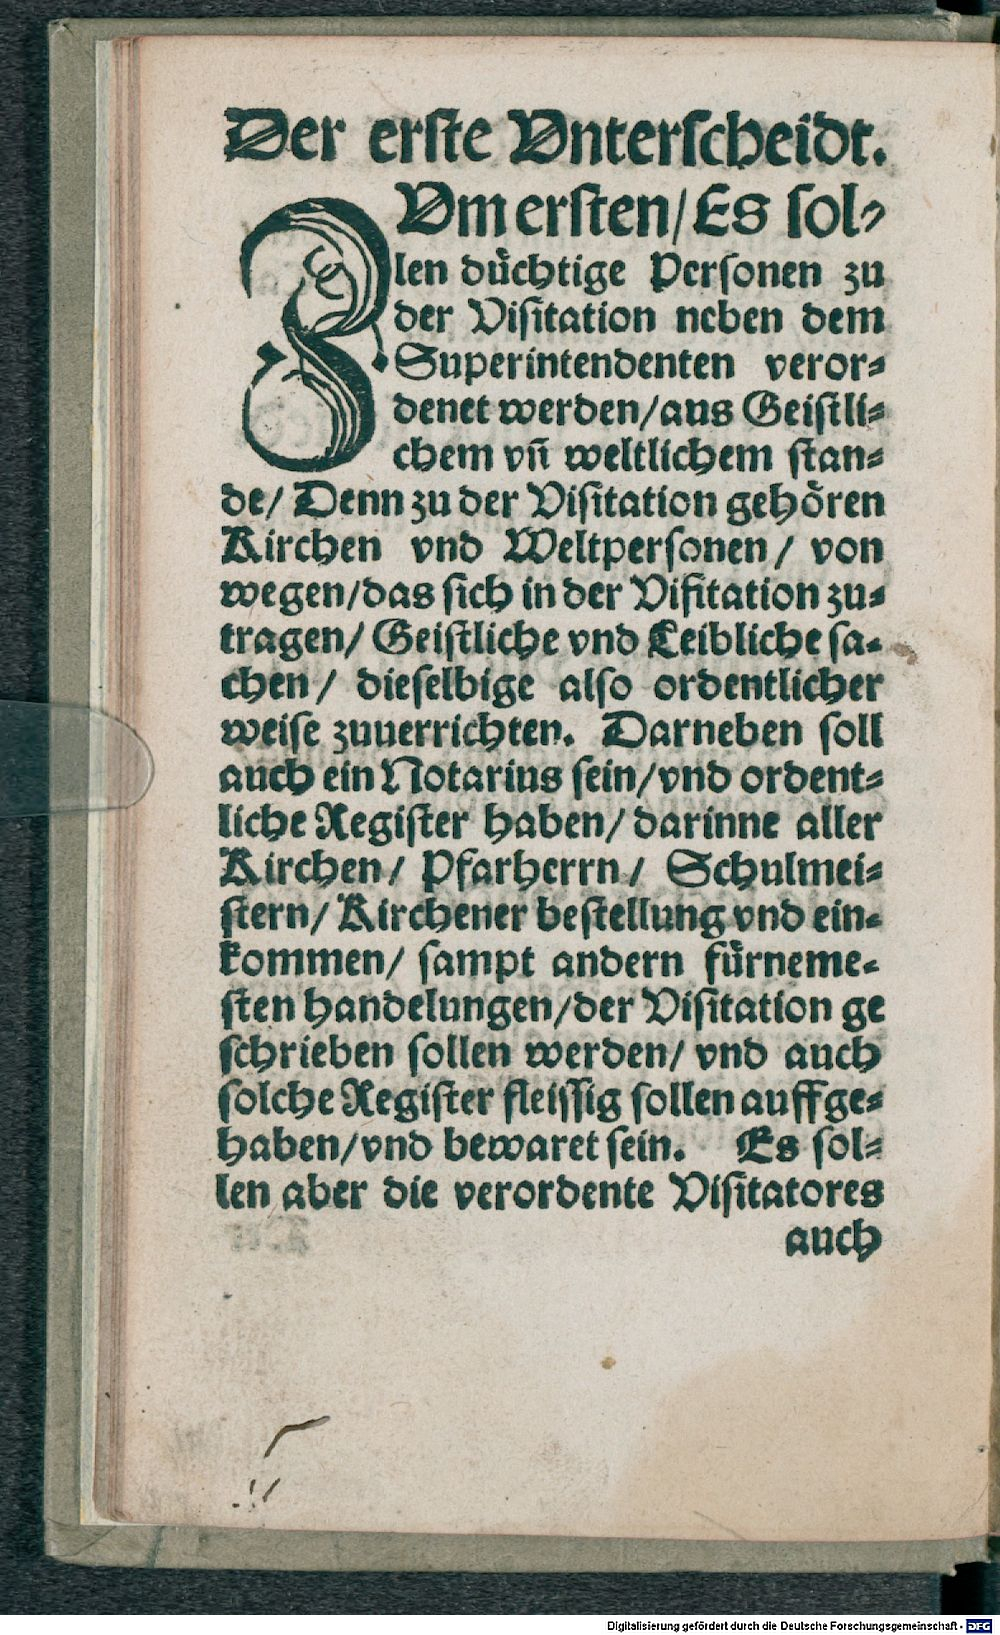 Der erste Vnterscheidt.
ZVm ersten/Es sol-
len düchtige Personen zu
der Visitation neben dem
Superintendenten veror-
denet werden/aus Geistli-
chem vñ weltlichem stan-
de/ Denn zu der Visitation gehören
Kirchen vnd Weltpersonen/ von
wegen/das sich in der Visitation zu-
tragen/ Geistliche vnd Leibliche sa-
chen/ dieselbige also ordentlicher
weise zuuerrichten. Darneben soll
auch ein Notarius sein/vnd ordent-
liche Register haben/darinne aller
Kirchen/ Pfarherrn/ Schulmei-
stern/Kirchener bestellung vnd ein-
kommen/ sampt andern fürneme-
sten handelungen/der Visitation ge
schrieben sollen werden/ vnd auch
solche Register fleissig sollen auffge-
haben/vnd bewaret sein. Es sol-
len aber die verordente Visitatores
auch
Digitalisierung gefördert durch die Deutsche Forschungsgemeinschaft - DFG